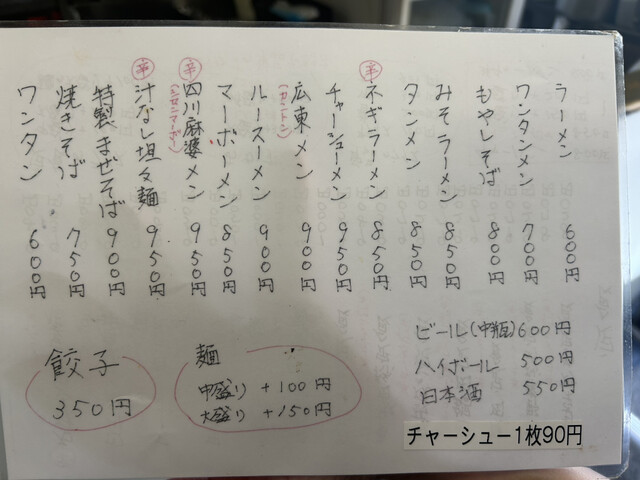 ラーメン 600円
ワンタンメン 700円
もやしそば 800円
みそラーメン 850円
タンメン 850円
辛 ネギラーメン 850円
チャーシューメン 950円
広東メン (カントン) 900円
ルースーメン 900円
マーボーメン 850円
辛 四川麻婆メン (シセンマーボー) 950円
辛 汁なし坦々麺 950円
特製まぜそば 900円
焼きそば 750円
ワンタン 600円
ビール(中瓶) 600円
ハイボール 500円
日本酒 550円
チャーシュー1枚90円
麺
中盛り +100円
大盛り +150円
餃子
350円